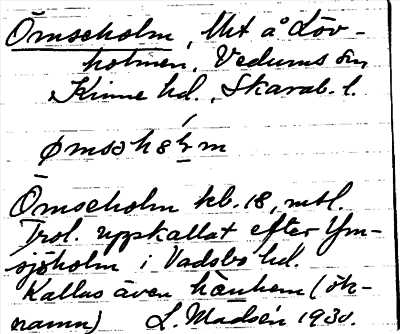 Ömseholm, Mt å Löv-
holmen, Vedums sn,
Kinne hd., Skarab. l.
ømsəh8lm
Ömseholm kb. 18, mtl.
Trol. uppkallat efter Ym-
sjöholm i Vadsbo hd.
Kallas även hänhem (ök-
namn) L. Madsén 1930.